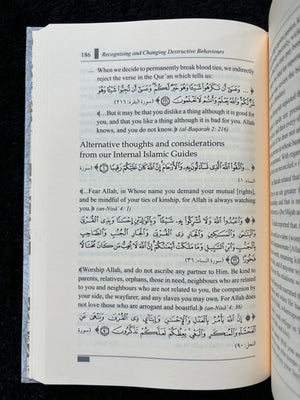 186 Recognising and Changing Destructive Behaviours
When we decide to permanently break blood ties, we indirectly
reject the verse in the Qur’an which tells us:
﴿... وَعَسَىٰ أَن تَكْرَهُوا۟ شَيْـًٔا وَهُوَ خَيْرٌ لَّكُمْ وَعَسَىٰ أَن تُحِبُّوا۟ شَيْـًٔا وَهُوَ
شَرٌّ لَّكُمْ وَٱللَّهُ يَعْلَمُ وَأَنتُمْ لَا تَعْلَمُونَ﴾ (سورة البقرة: ٢١٦)
﴾...But it may be that you dislike a thing although it is good for
you, and that you like a thing although it is bad for you. Allah
knows, and you do not know.﴿ (al-Baqarah 2: 216)
Alternative thoughts and considerations
from our Internal Islamic Guides
﴿... وَٱتَّقُوا۟ ٱللَّهَ ٱلَّذِى تَسَآءَلُونَ بِهِۦ وَٱلْأَرْحَامَ إِنَّ ٱللَّهَ كَانَ عَلَيْكُمْ رَقِيبًا﴾ (سورة
النساء: ١)
﴾...Fear Allah, in Whose name you demand your mutual [rights],
and be mindful of your ties of kinship, for Allah is always watching
over you.﴿ (an-Nisâ’ 4: 1)
﴿وَٱعْبُدُوا۟ ٱللَّهَ وَلَا تُشْرِكُوا۟ بِهِۦ شَيْـًٔا وَبِٱلْوَٰلِدَيْنِ إِحْسَـٰنًا وَبِذِى ٱلْقُرْبَىٰ
وَٱلْيَتَـٰمَىٰ وَٱلْمَسَـٰكِينِ وَٱلْجَارِ ذِى ٱلْقُرْبَىٰ وَٱلْجَارِ ٱلْجُنُبِ وَٱلصَّاحِبِ
بِٱلْجَنۢبِ وَٱبْنِ ٱلسَّبِيلِ وَمَا مَلَكَتْ أَيْمَـٰنُكُمْ إِنَّ ٱللَّهَ لَا يُحِبُّ مَن كَانَ
مُخْتَالًا فَخُورًا﴾ (سورة النساء: ٣٦)
﴾Worship Allah, and do not ascribe any partner to Him. Be kind to
parents, relatives, orphans, those in need, neighbours who are related
to you and neighbours who are not related to you, the companion by
your side, the wayfarer, and any slaves you may own. For Allah does
not love those who are arrogant and boastful.﴿ (an-Nisâ’ 4: 36)
﴿إِنَّ ٱللَّهَ يَأْمُرُ بِٱلْعَدْلِ وَٱلْإِحْسَـٰنِ وَإِيتَآئِ ذِى ٱلْقُرْبَىٰ وَيَنْهَىٰ عَنِ
ٱلْفَحْشَآءِ وَٱلْمُنكَرِ وَٱلْبَغْىِ يَعِظُكُمْ لَعَلَّكُمْ تَذَكَّرُونَ﴾ (سورة
النحل: ٩٠)